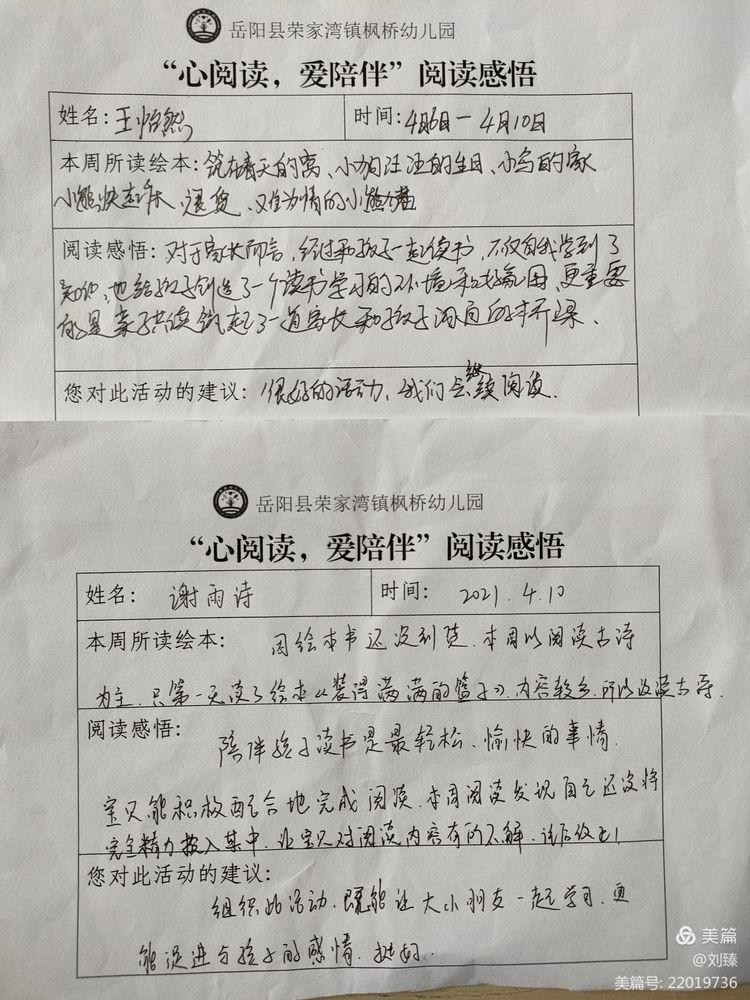 岳阳县荣家湾镇枫桥幼儿园
“心阅读，爱陪伴”阅读感悟
姓名：王怡然
时间：4月6日—4月10日
本周所读绘本：筑在晴天的窝、小狗汪汪的生日、小鸟的家
小熊快起床、难为情的小
阅读感悟：对于家长而言，经过和孩子一起读书，不仅自我学到了
知识，也给孩子创造了一个读书学习的环境和好氛围，更重要
的是亲子共读筑起了一道家长和孩子沟通的桥梁、
您对此活动的建议：很好的活动，我们会继续阅读.
岳阳县荣家湾镇枫桥幼儿园
“心阅读，爱陪伴”阅读感悟
姓名：谢雨诗
时间：2021.4.10
本周所读绘本：因绘本书还没到货.本周以阅读古诗
为主.只第一天读了绘本《装得满满的篮子》.内容较多.所以改读古诗.
阅读感悟：
陪伴孩子读书是最轻松、愉快的事情.
宝贝能积极配合地完成阅读.本周阅读发现自己还没将
完全精力投入其中.让宝贝对阅读内容有所不解.该后改正!
您对此活动的建议：
组织此活动.既能让大小朋友一起学习.更
能促进与孩子的感情.挺好.
美篇
@刘臻
美篇号: 22019736